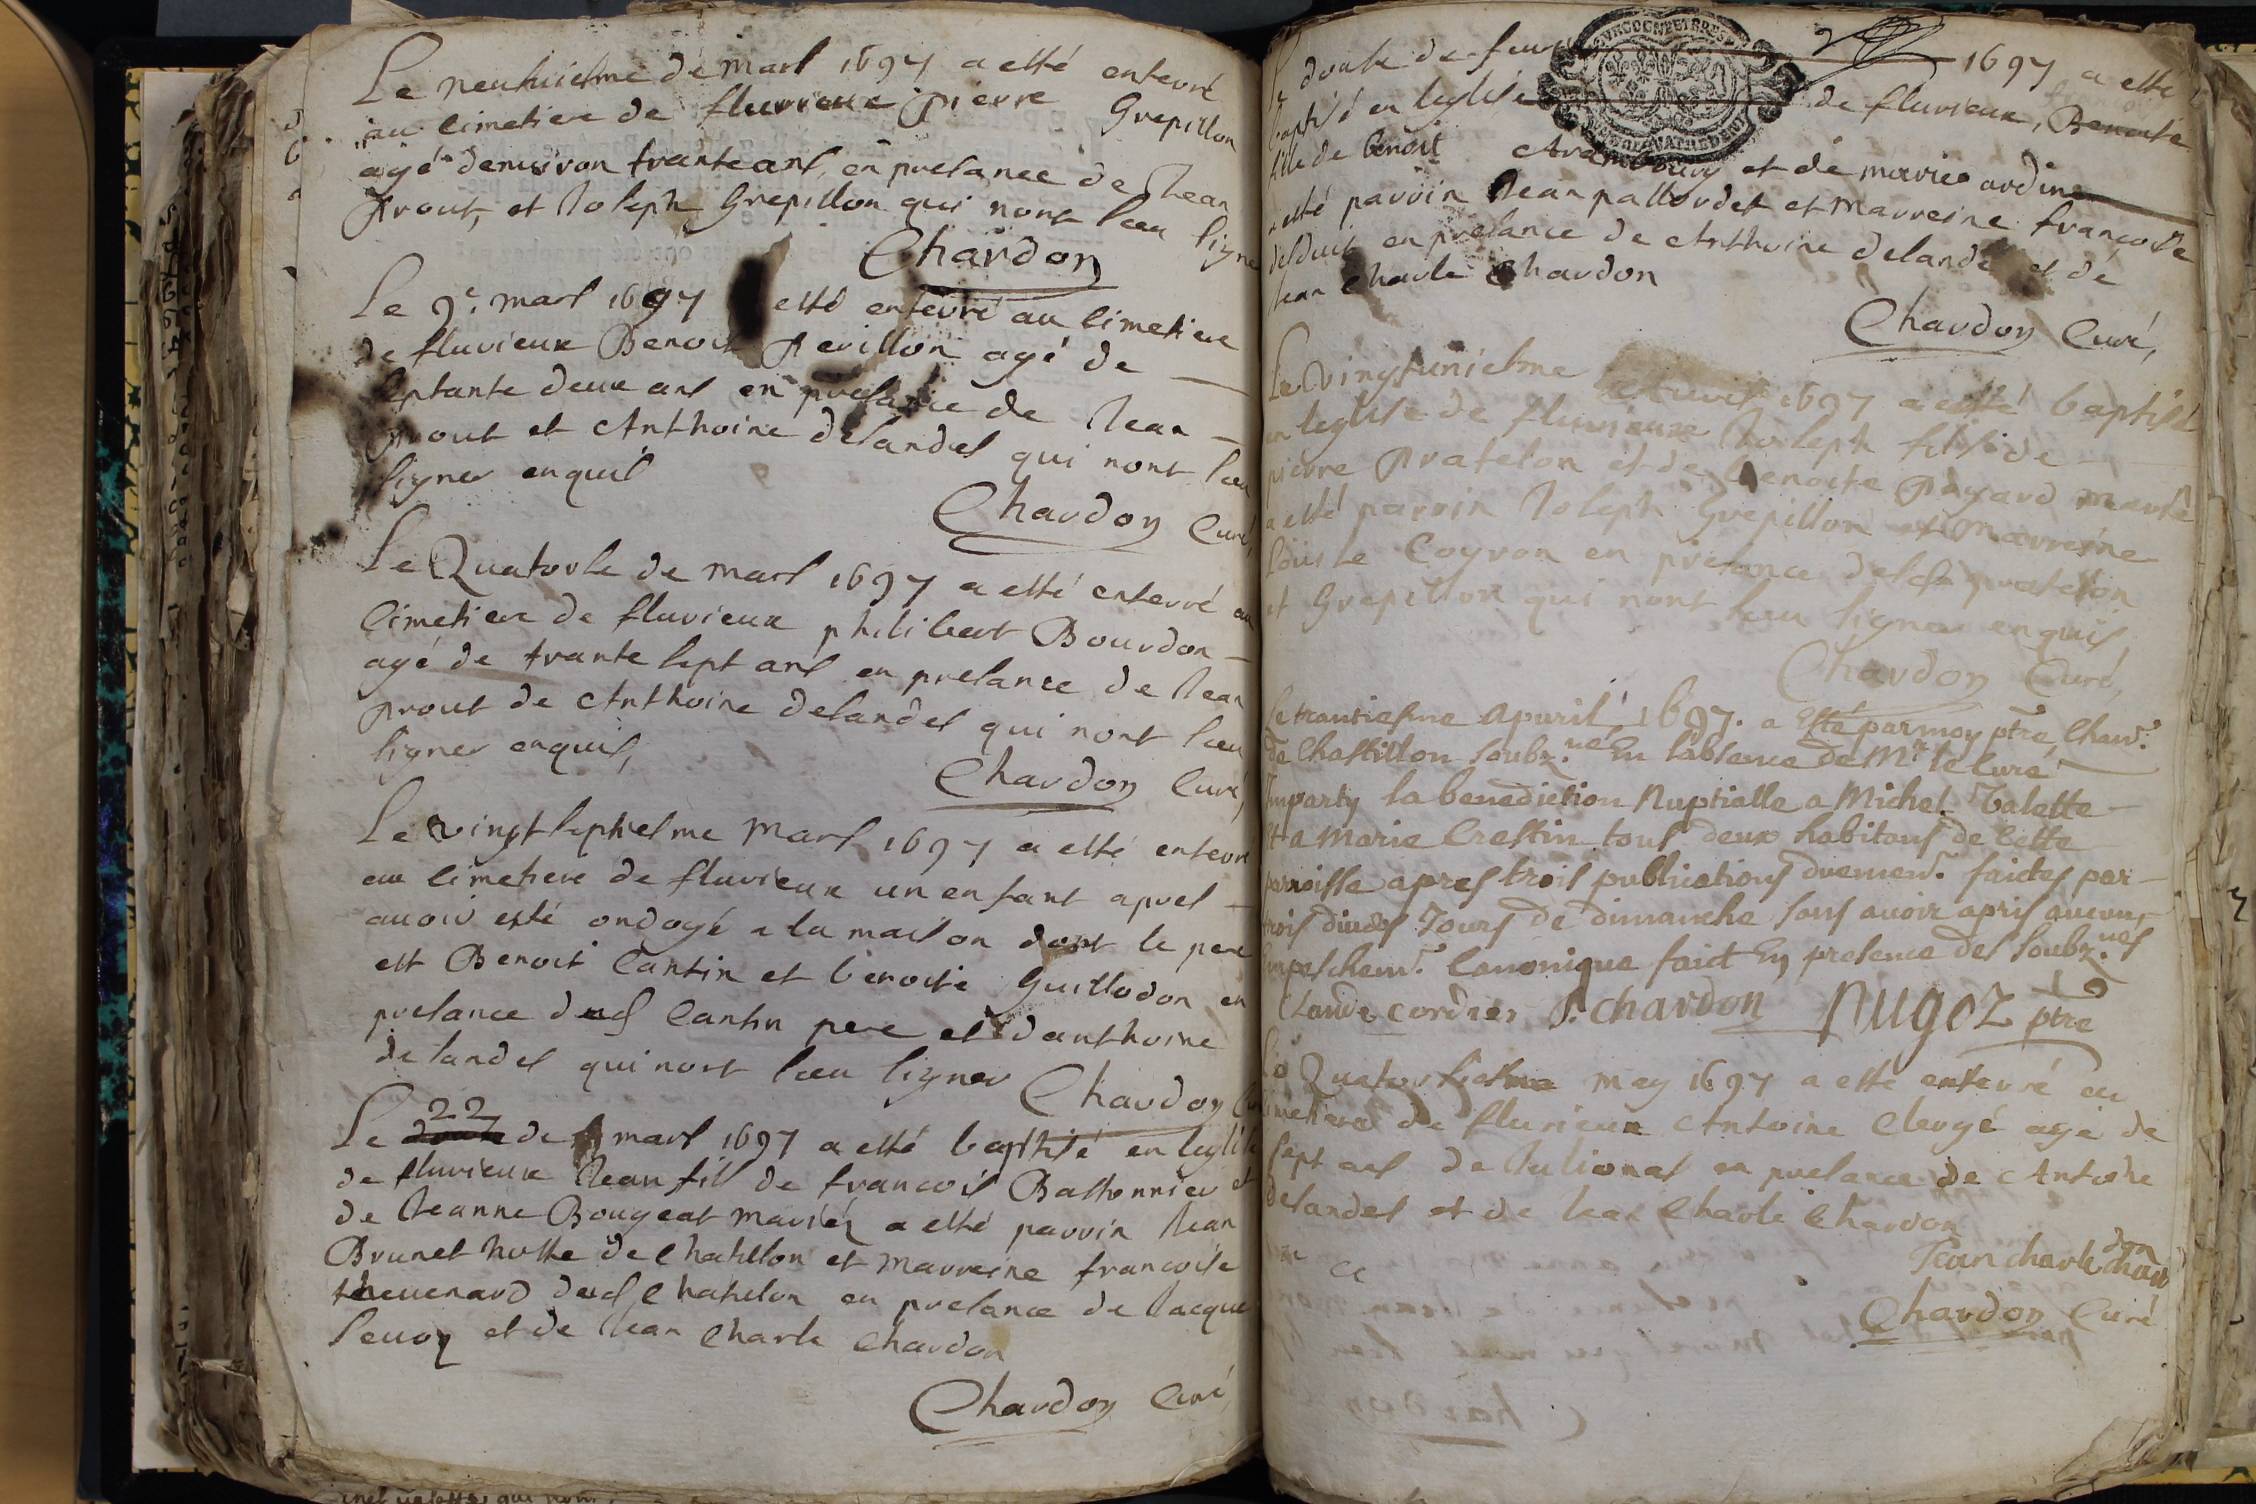 Le neufviesme de mars 1697 a esté enterré
au cimetiere de fluvieux pierre Grepillon
agé denviron trante ans, en presance de Jean
prout, et Joseph Grepillon qui nont sceu signe
Chardon
Le 9e. mars 1697 esté enterré au cimetiere
de fluvieux Benoit perillon agé de
septante deux ans en presance de Jean
prout et Anthoine delandes qui nont sceu
signer enquis
Chardon Curé,
Le Quatorse de mars 1697 a esté enterré au
cimetiere de fluvieux philibert Bourdon
agé de trante sept ans en presance de Jean
prout de Anthoine delandes qui nont sceu
signer enquis,
Chardon Curé,
Le vingt septiesme mars 1697 a esté enterré
au cimetiere de fluvieux un enfant apres
avoir esté ondoyé a la maison dont le pere
est Benoit Cantin et benoite Guillodon en
presance dud Cantin pere et danthoine
delandes qui nont sceu signer Chardon
22
Le de mars 1697 a esté baptisé en leglise
de fluvieux Jean fils de francois Bathonnier et
de Jeanne Bougeat mariéz a esté parrin Jean
Brunet hoste de Chatillon et marreine francoise
theuenard dud Chatillon en presance de Jacque
Seuoy et de Jean Charle Chardon
Chardon Curé
Le douse de feur 1697 a esté
baptisé en leglise de fluvieux, Benoite
fille de benoit Arambourg et de marie ardine
a esté parrin Jean pallordet et marreine francoise
delduit en presance de Anthoine delande et de
Jean Charle Chardon
Chardon Curé,
Le vingtuniesme 1697 a esté baptisé
en leglise de fluvieux Joseph fils de
pierre pratelon et de benoite payard mariés
a esté parrin Joseph Grepillon et marreine
Louise Coyron en presance desd pratelon
et Grepillon qui nont sceu signer enquis
Chardon Curé,
Le trantiesme apuril 1697. a Esté par moy ptre, Chan.
de Chastillon soubz.né En labsence de Mr le curé
Imparty la benediction Nuptialle a Michel Valette
Et a Marie Crestin tous deux habitans de cette
parroisse apres trois publications duemen.t faictes par
trois diuers Jours de dimanche sans auoir apris aucun
Empeschem.t Canonique faict En presence des soubz.nés
Claude cordier J. chardon Nugoz ptre
Le Quatorsiesme may 1697 a esté enterré au
cimetiere de fluvieux Antoine Clergé agé de
sept ans de Julionas en presance de Antoine
delandes et de Jean Charle Chardon
Jean charle chardon
Chardon Curé